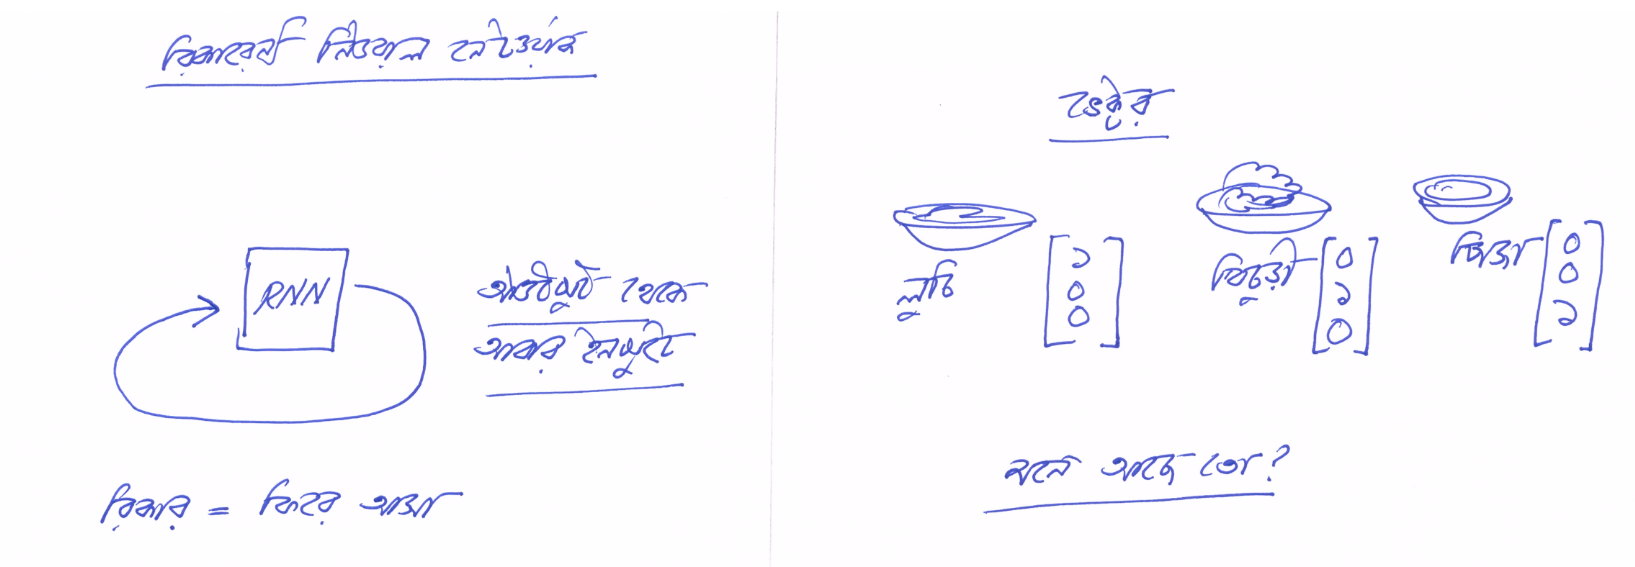 রিকারেন্ট নিউরাল নেটওয়ার্ক
RNN
আউটপুট থেকে
আবার ইনপুট
রিকার = ফিরে আসা
ভেক্টর
লুচি
[১ ০ ০]
খিচুড়ী
[০ ১ ০]
পিজা
[০ ০ ১]
মনে আছে তো?